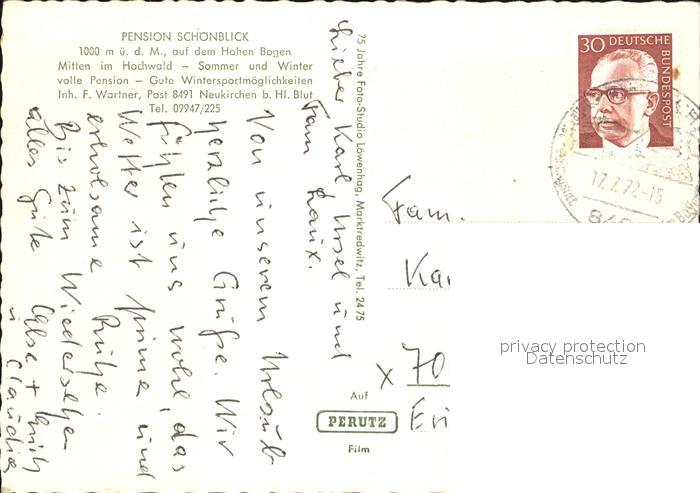 PENSION SCHÖNBLICK
1000 m ü. d. M., auf dem Hohen Bogen
Mitten im Hochwald – Sommer und Winter
volle Pension – Gute Wintersportmöglichkeiten
Inh. F. Wartner, Post 8491 Neukirchen b. Hl. Blut
Tel. 09947/225
Lieber Karl Ursel und
Fam Laux.
Von unserem Urlaub
herzliche Grüße. Wir
fühlen uns wohl, das
Wetter ist prima und
erholsame Ruhe.
Bis zum Wiedersehen
alles Gute Ilse + Erich
u. Claudia
75 Jahre Foto-Studio Löwenhag, Marktredwitz, Tel. 24 75
Auf
PERUTZ
Film
30 DEUTSCHE
BUNDESPOST
17.7.72-15
Fam.
Ka
x 70
Eri
privacy protection
Datenschutz